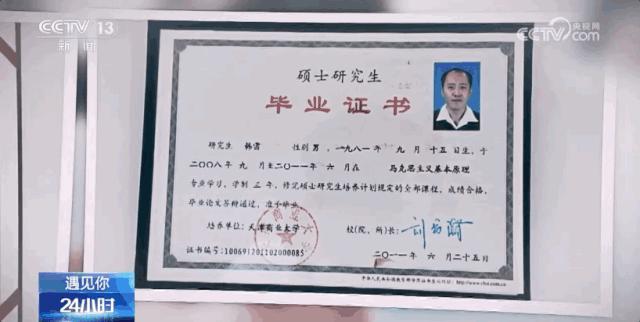 CCTV 13
新闻
央视网
CCTV.com
硕士研究生
毕业证书
研究生 韩雷 性别 男，一九八一年 九 月 十五 日生，于
二〇〇八年 九 月至二〇一一年 六 月在 马克思主义基本原理
专业学习，学制 三 年，修完硕士研究生培养计划规定的全部课程，成绩合格，
毕业论文答辩通过，准予毕业。
培养单位：天津商业大学 校(院、所)长：
证书编号：100691201102000085 二〇一一年 六 月二十五日
遇见你
24小时